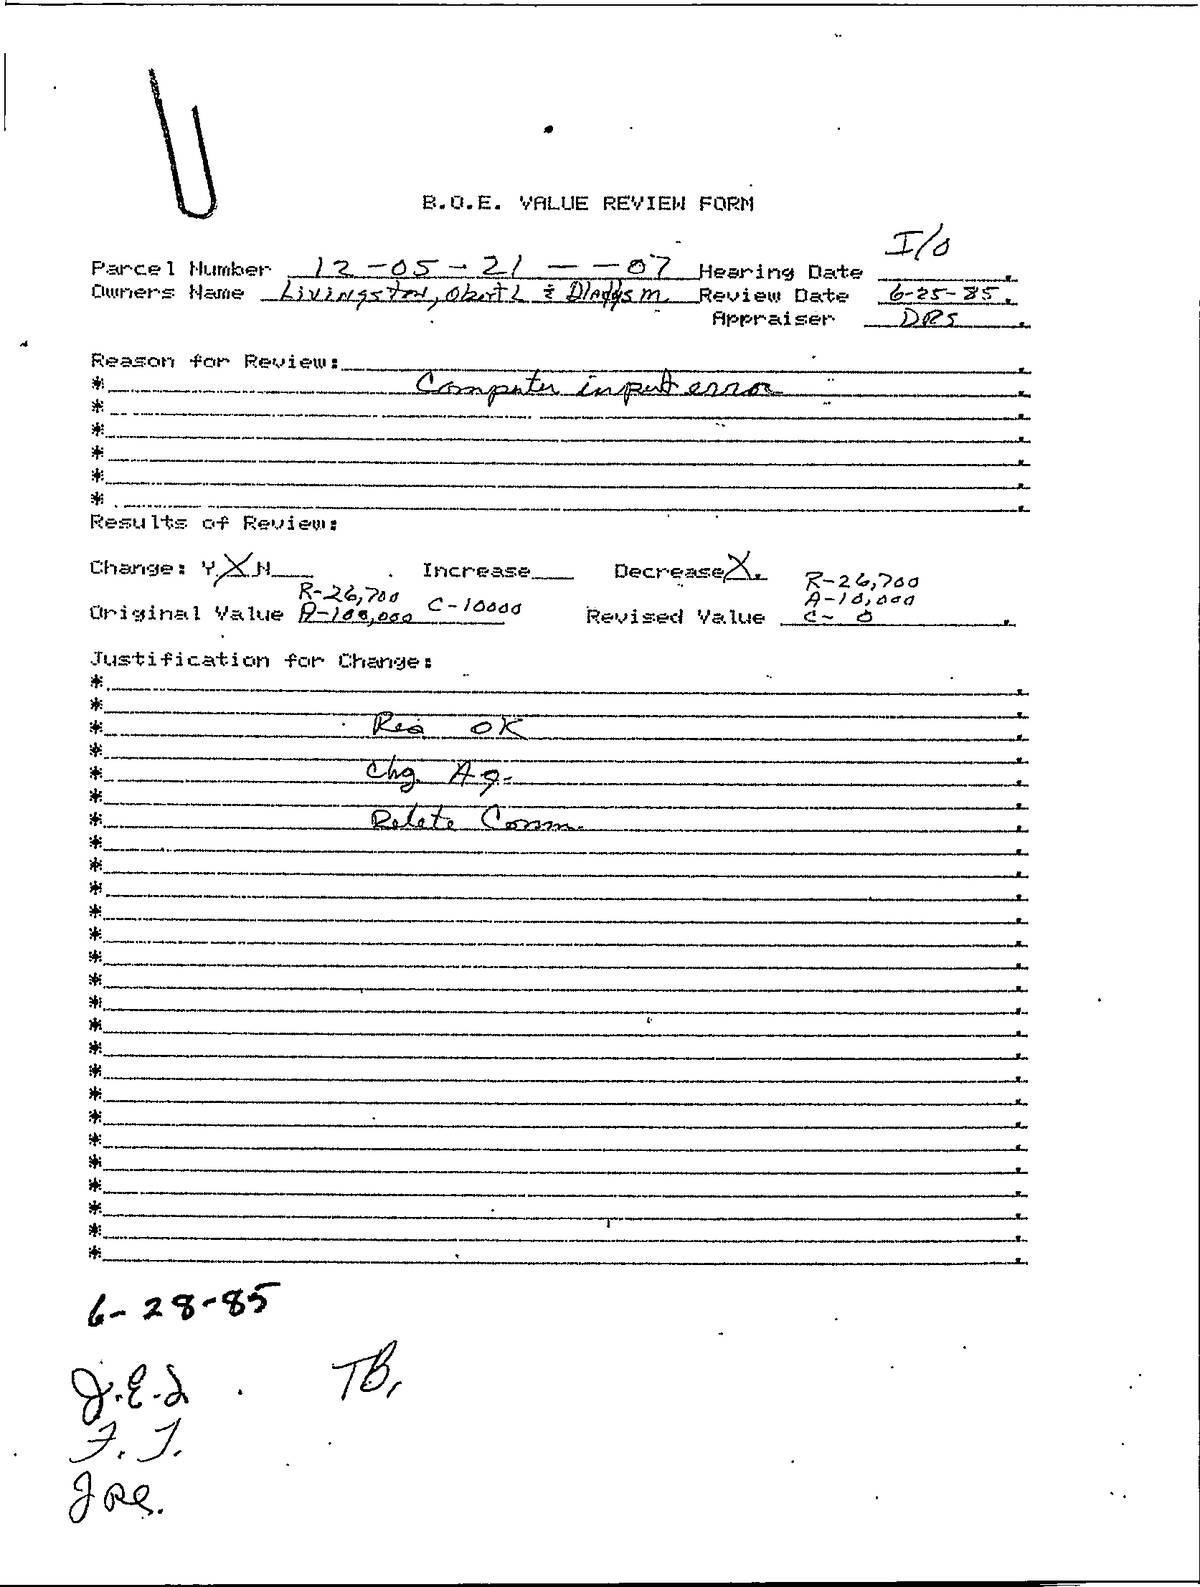 B.O.E. VALUE REVIEW FORM
I/O
Parcel Number 12-05-21--07 Hearing Date
Owners Name Livingston, L & Gladys M. Review Date 6-25-85.
Appraiser DRS
Reason for Review:
* Computer input error
*
*
*
*
*
Results of Review:
Change: Y X N Increase Decrease X.
R-26,700 C-10000 R-26,700
Original Value A-100,000 Revised Value A-10,000
C- 0
Justification for Change:
*
*
* Res OK
*
* Chg. Ag.
*
* Delete Comm.
*
*
*
*
*
*
*
*
*
*
*
*
*
*
*
*
*
*
*
6-28-85
J.E.L TB,
F. J.